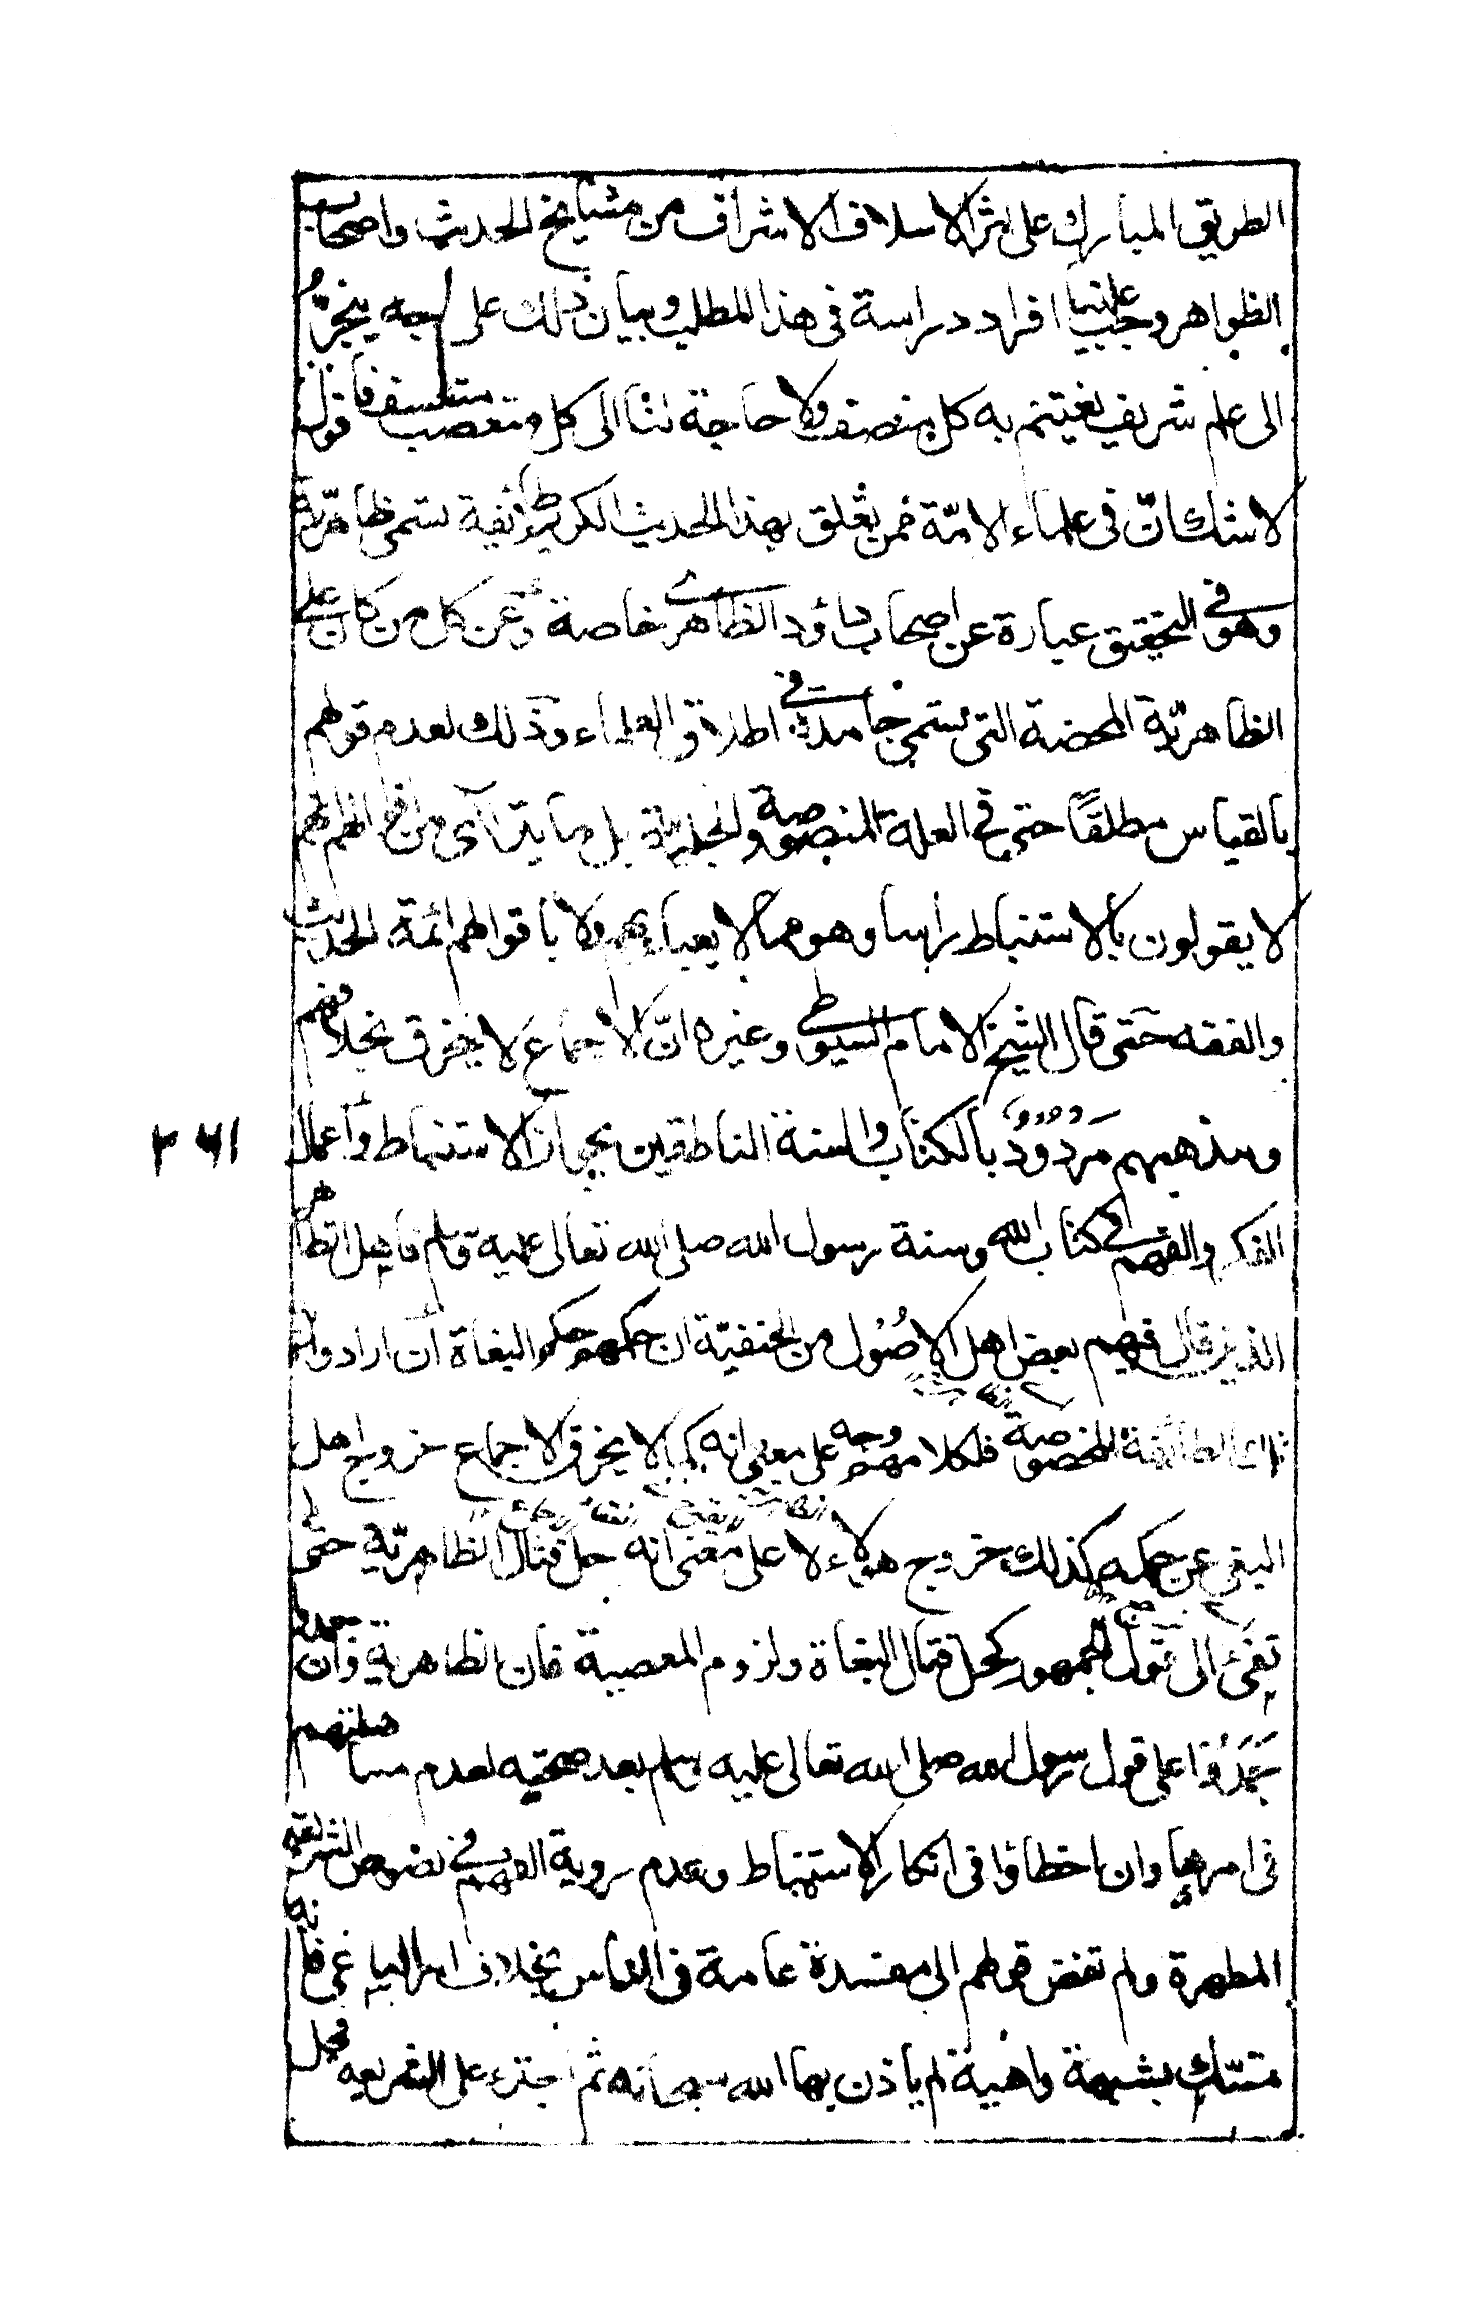 الطريق المبارك على اثر الاسلاف الاشراف من مشايخ الحديث واصحاب
الظواهر وجب علينا افراد دراسة فى هذا المطلب وبيان ذلك على وجه ينجرّ
الى علم شريف يغتنم به كل منصف ولا حاجة لنا الى كل متعصب متعسف فاقول
لا شك انّ فى علماء الامّة فمن تعلق بهذا الحديث الكريم طائفة تسمى ظاهريّة
وهو فى التحقيق عبارة عن اصحاب داؤد الظاهرى خاصة وعن كل من كان على
الظاهريّة المحضة التى تسمى جامدة فى اطلاق العلماء وذلك لعدم قولهم
بالقياس مطلقًا حتى فى العلة المنصوصة والجلية بل ما يترآى من اقوالهم انهم
لا يقولون بالاستنباط راسا وهو مما لا يعباء بهم ولا باقوالهم ائمة الحديث
والفقه حتى قال الشيخ الامام السيوطى وغيره انّ الاجماع لا يخرق بخلافهم
ومذهبهم مَردُودٌ بالكتاب والسنة الناطقين بجواز الاستنباط واعمال
الفكر والفهم فى كتاب الله وسنة رسول الله صلى الله تعالى عليه وسلم فاهل الظاهر
الذين قال فيهم بعض اهل الاصُول من الحنفيّة ان حكمهم حكم البغاة ان ارادوا
تلك الطائفة المخصوصة فلكلامهم وجه على معنى انه كما لا يخرق الاجماع خروج اهل
البغى عن حكمه كذلك خروج هؤلاء لا على معنى انه حل قتال الظاهريّة حتى
تفئ الى قول الجمهور كحل قتال البغاة ولزوم المعصية فان الظاهرية وان
جَمَدُوا على قول رسول الله صلى الله تعالى عليه وسلم بعد صحته لعدم مساهلتهم
فى امرها وان اخطاؤا فى انكار الاستنباط وعدم روية الفهم فى نصوص الشريعة
المطهرة ولم تفض قولهم الى مفسدة عامة فى الناس بخلاف امر الباغى فانه
متمسّك بشبهة واهية لم ياذن بها الله سبحانه ثم اجترء على الشريعة فجعل
٢٦١